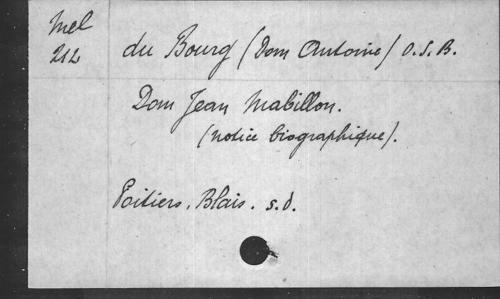 Mel
212
du Bourg (Dom Antoine) O.S.B.
Dom Jean Mabillon.
(notice biographique).
Poitiers, Blais. s.d.